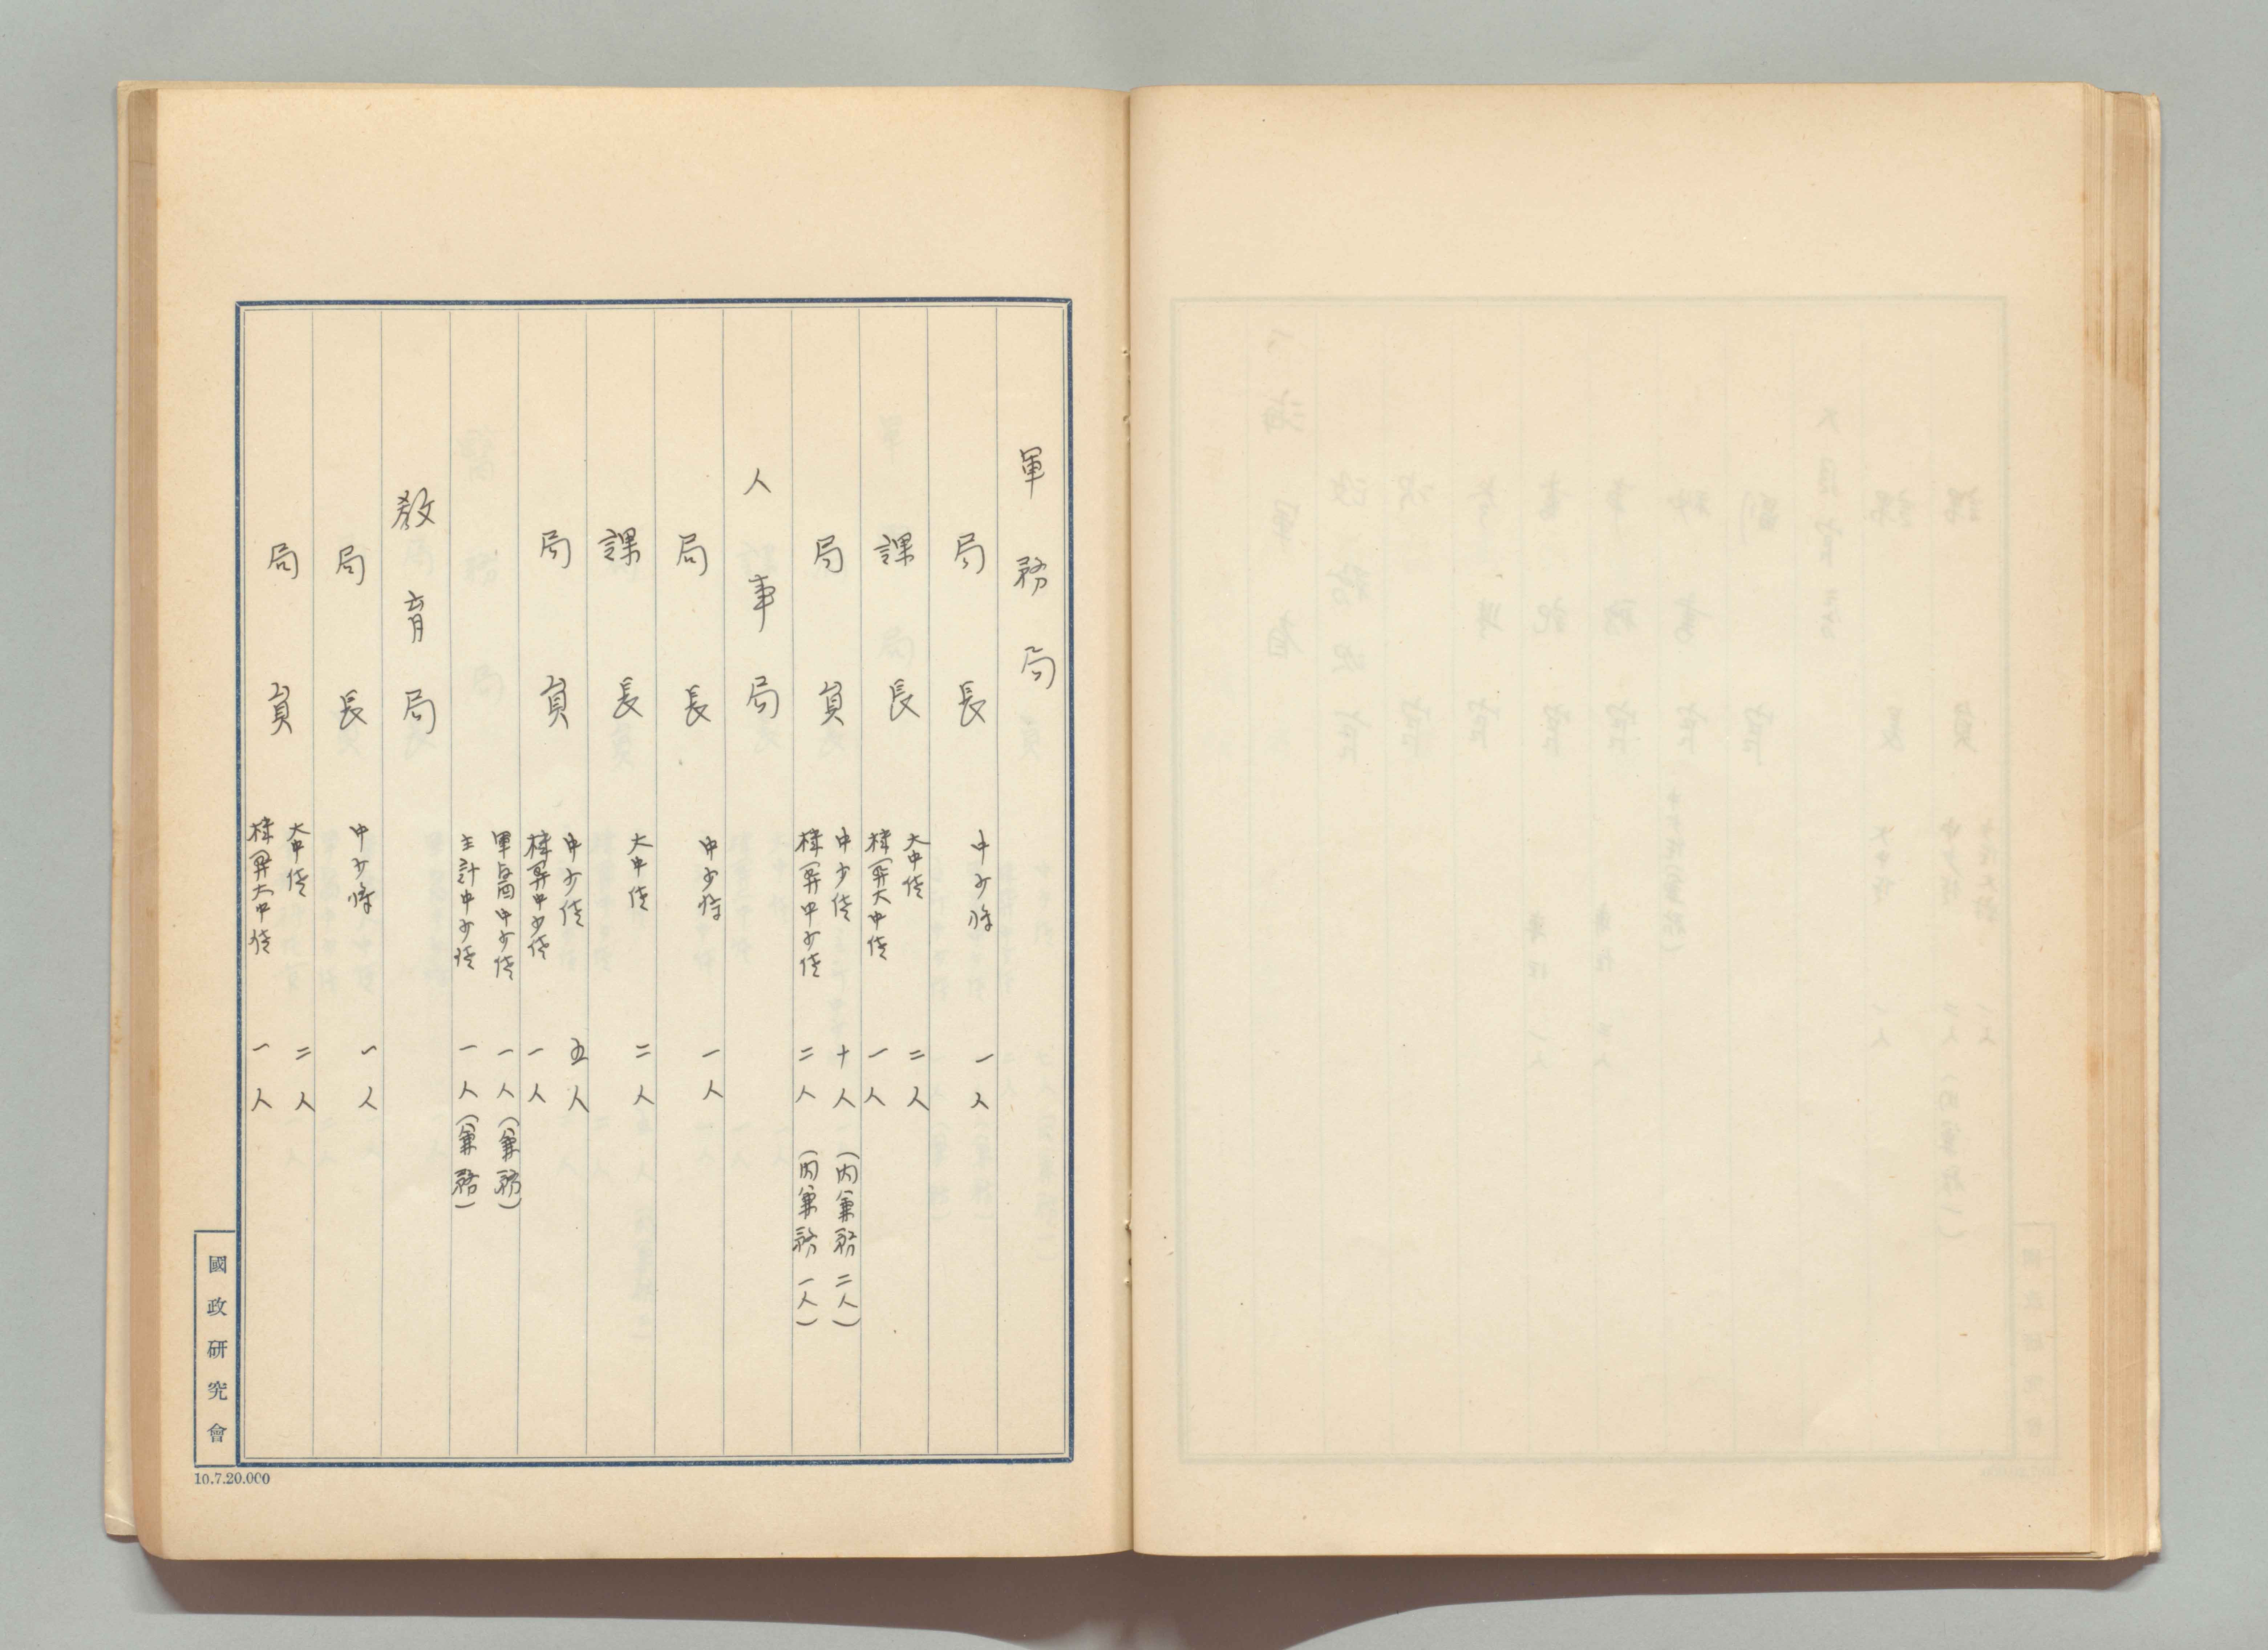 軍務局
局長 中少将 一人
課長 大中佐 二人
機関大中佐 一人
局員 中少佐 十人(内兼務二人)
機関中少佐 二人(内兼務一人)
人事局
局長 中少将 一人
課長 大中佐 二人
局員 中少佐 五人
機関中少佐 一人
軍医中少佐 一人(兼務)
主計中少佐 一人(兼務)
教育局
局長 中少将 一人
局員 大中佐 二人
機関大中佐 一人
國政研究會
10.7.20.000